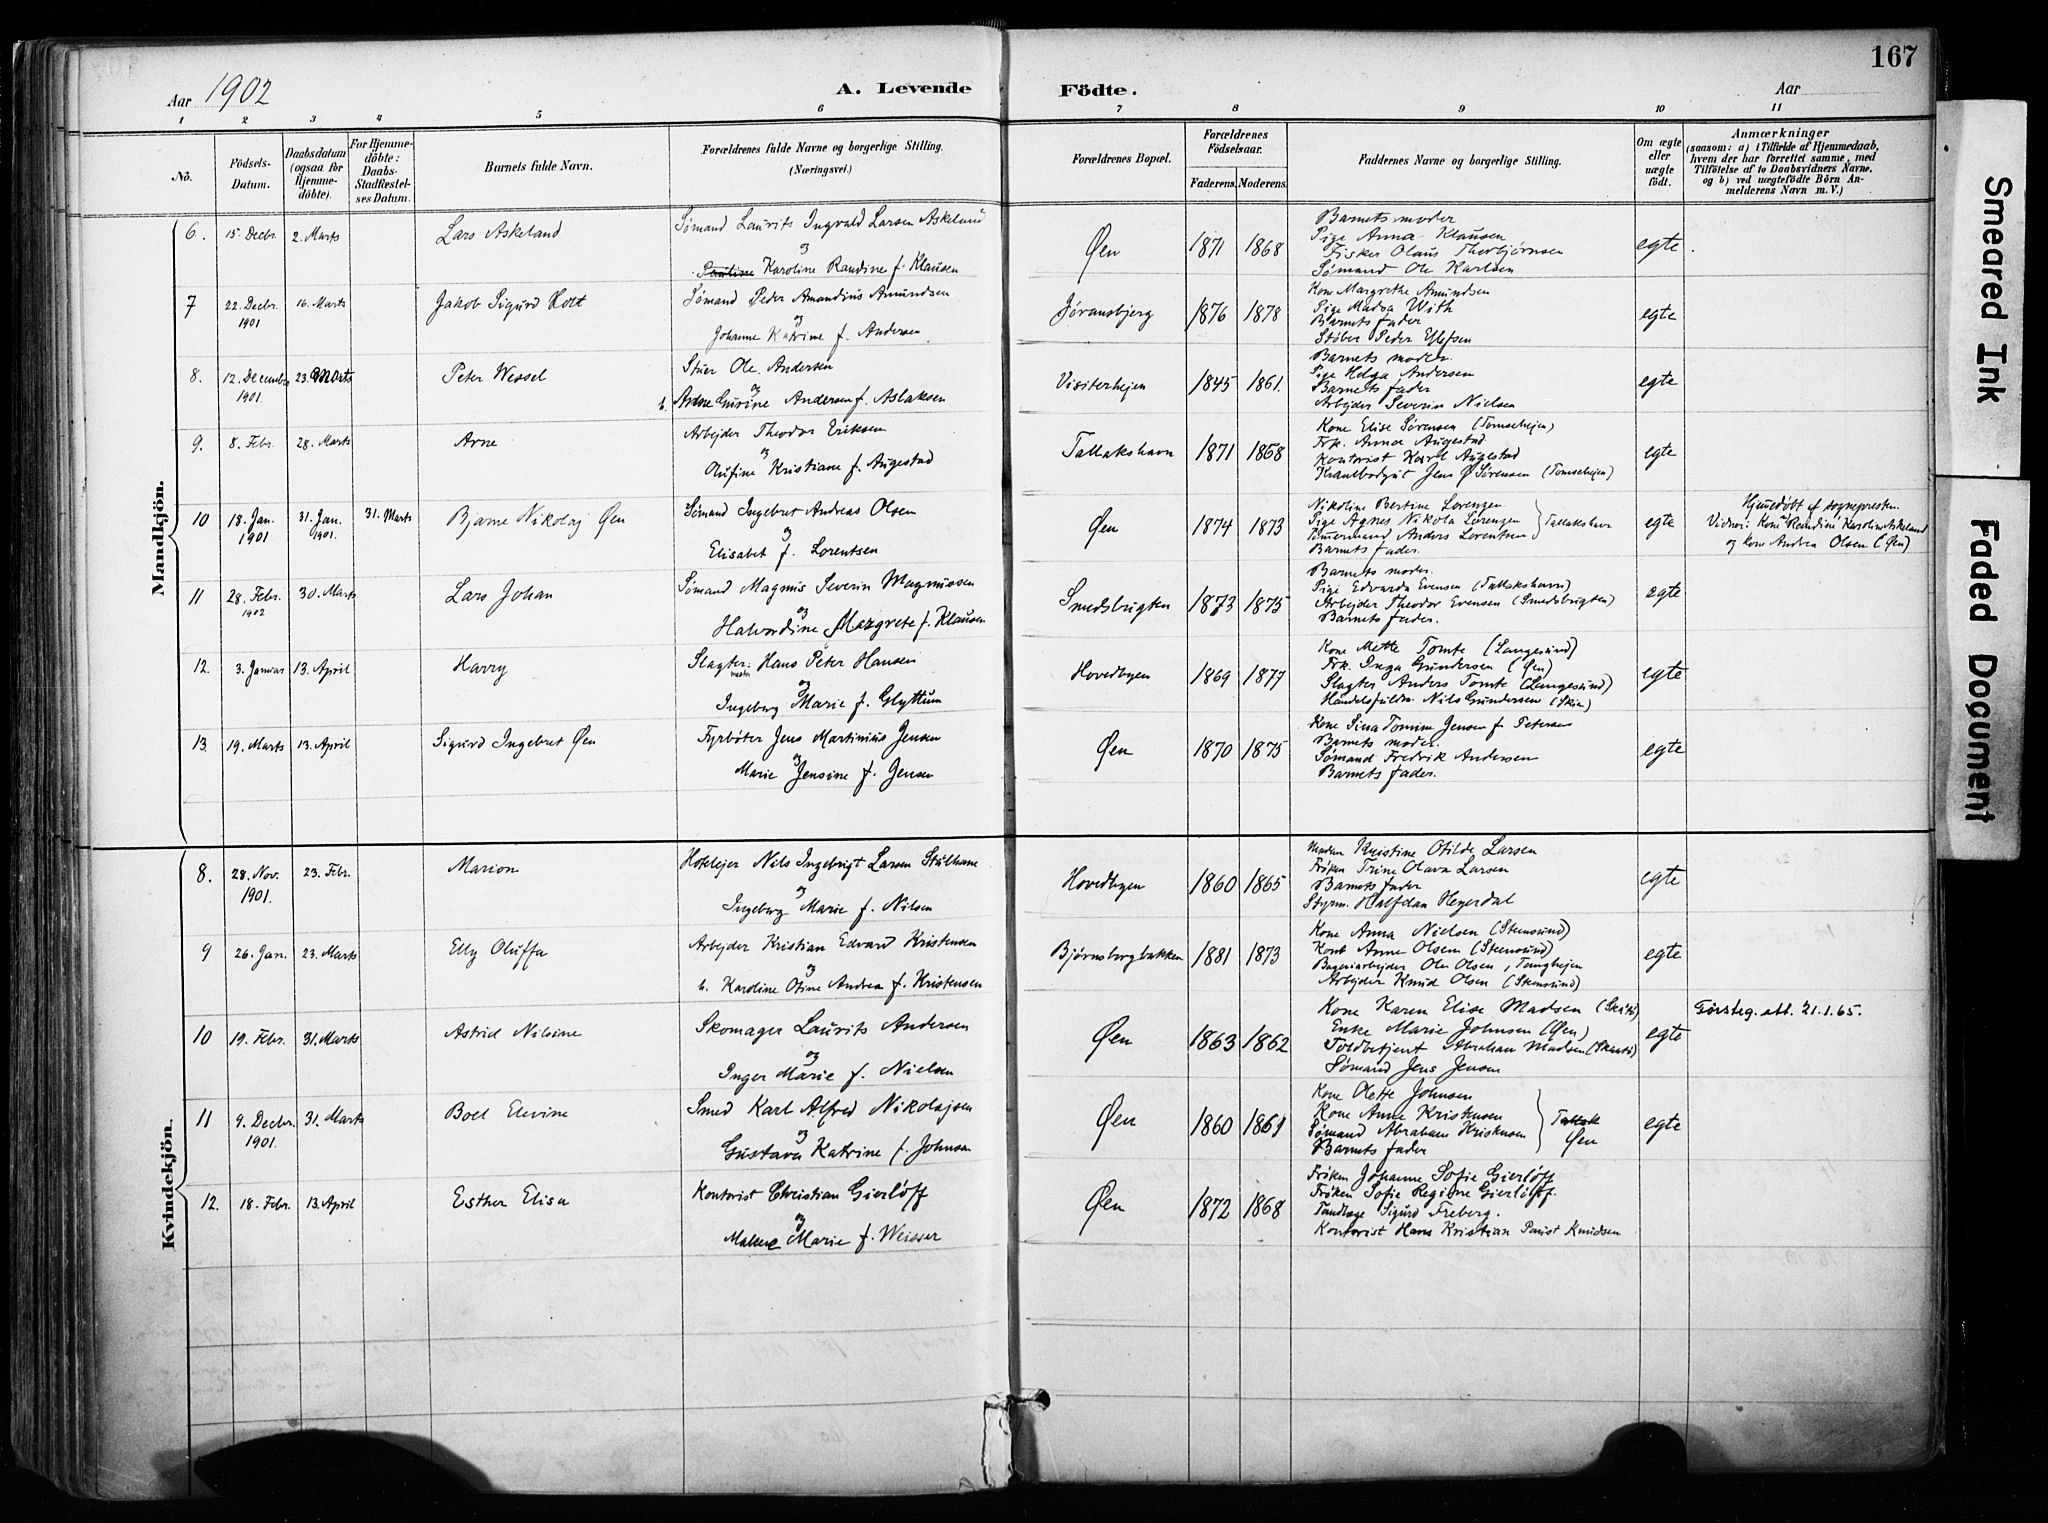 167
Aar 1902
A. Levende Födte.
Aar
1 2 3 4 5 6 7 8 9 10 11
No.
Födsels-Datum.
Daabsdatum (ogsaa for Hjemme-döbte).
For Hjemme-döbte: Daabs-Stadfæstel-ses Datum.
Barnets fulde Navn.
Forældrenes fulde Navne og borgerlige Stilling. (Næringsvei.)
Forældrenes Bopæl.
Forældrenes Födselsaar.
Faderens. Moderens.
Faddernes Navne og borgerlige Stilling.
Om ægte eller uægte födt.
Anmærkninger
(saasom: a) i Tilfælde af Hjemmedaab, hvem der har forrettet samme, med Tilföielse af to Daabsvidners Navne, og b) ved uægtefödte Börn An-melderens Navn m. V.)
Mandkjön.
6. 15. Decbr. 2. Marts Lars Askeland
Sømand Laurits Ingvald Larsen Askeland
og
Pauline Karoline Randine f. Klausen
Øen 1871 1868
Barnets moder
Pige Anna Klausen
Fisker Olaus Thorbjørnsen
Sømand Ole Karlsen
egte
7 22. Decbr. 1901 16. Marts Jakob Sigurd Holt
Sømand Peder Amandius Amundsen
og
Johanne Katrine f. Andersen
Jøransbjerg 1876 1878
Kone Margrethe Amundsen
Pige Madsa With
Barnets fader
Støber Peder Ellefsen
egte
8. 12. Decembr 1901. 23. Marts Peter Wessel
Stuer Ole Andersen
og
h. Anne Gurine Andersen f. Aslaksen
Visiterhejen 1845 1861.
Barnets moder.
Pige Helga Andersen
Barnets fader
Arbejder Severin Nielsen
egte
9. 8. Febr. 28. Marts Arne
Arbejder Theodor Eriksen
og
Olufine Kristiane f. Augestad
Tallakshavn 1871 1868
Kone Elise Sørensen (Tomsehejen)
Frk. Anna Augestad
Kontorist Karl Augestad
Jens Ø Sørensen (Tomsehejen)
egte
10 18. Jan. 1901 31. Jan. 1901. 31. Marts Bjarne Nikolaj Øen
Sømand Ingebret Andreas Olsen
og
Elisabet f. Lorentsen
Øen 1874 1873
Nikoline Bertine Lorenzen
Pige Agnes Nikola Lorenzen
Tømermand Anders Lorentsen
Barnets fader.
Tallakshavn
egte
Hjemedøbt af sognepresten.
Vidner: Kone Randine Karoline Askeland
og kone Andrea Olsen (Øen)
11 28. Febr. 1902 30. Marts Lars Johan
Sømand Magnus Severin Magnussen
og
Halvordine Margrete f. Klausen
Smedsbugten 1873 1875
Barnets moder.
Pige Edvarda Evensen (Tallakshavn)
Arbejder Theodor Evensen (Smedsbugten)
Barnets fader.
egte
12. 3. Januar 13. April Harry
Slagtermester Hans Peter Hansen
og
Ingeborg Marie f. Glyttum
Hovedbyen 1869 1877
Kone Mette Tomte (Langesund)
Frk. Inga Gundersen (Øen)
Slagter Anders Tomte (Langesund)
Handelsfuldm. Nils Gundersen (Skien)
egte
13. 19. Marts 13. April Sigurd Ingebret Øen
Fyrbøter Jens Martinius Jensen
og
Marie Jensine f. Jensen
Øen 1870 1875
Kone Sina Tomine Jensen f. Petersen
Barnets moder.
Sømand Fredrik Andersen
Barnets fader.
egte
Kvindekjön.
8. 28. Nov. 1901. 23. Febr. Marion
Hotelejer Nils Ingebrigt Larsen Stulhane
og
Ingeborg Marie f. Nilsen
Hovedbyen 1860 1865
Madam Kristine Otilde Larsen
Frøken Trine Olava Larsen
Barnets fader
Styrm. Halfdan Heyerdal
egte
9 26. Jan. 23. Marts Elly Oluffa
Arbejder Kristian Edvard Kristensen
og
h. Karoline Otine Andrea f. Kristensen
Bjørnsborgbakken 1881 1873
Kone Anna Nielsen (Stensund)
Kone Anne Olsen (Stensund)
Bageriarbejder Ole Olsen, Tanghejen
Arbejder Knud Olsen (Stensund)
egte
10 19. Febr. 31. Marts Astrid Nilsine
Skomager Laurits Andersen
og
Inger Marie f. Nielsen
Øen 1863 1862
Kone Karen Elise Madsen
Enke Marie Johnsen (Øen)
Toldbetjent Abraham Madsen
Sømand Jens Jensen
egte
Førsteg. att. 21.1.65.
11 9. Decbr. 1901. 31. Marts Boel Elevine
Smed Karl Alfred Nikolajsen
og
Gustava Katrine f. Johnsen
Øen 1860 1861
Kone Olette Johnsen
Kone Anne Kristensen
Sømand Abraham Kristensen
Barnets fader
Tallak
Øen
egte
12. 18. Febr. 13. April Esther Elisa
Kontorist Christian Gierløff
og
Malene Marie f. Weisser
Øen 1872 1868
Frøken Johanne Sofie Gierløff
Frøken Sofie Regine Gierløff.
Tandlæge Sigurd Freberg.
Kontorist Hans Kristian Paust Knudsen
Smeared Ink
Faded Document